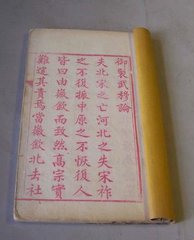 御製武移論
夫北宋之亡河北之失宋祚
之不復振中原之不恢復人
皆曰由徽欽而致然高宗實
難逭其責焉當徽欽北去社